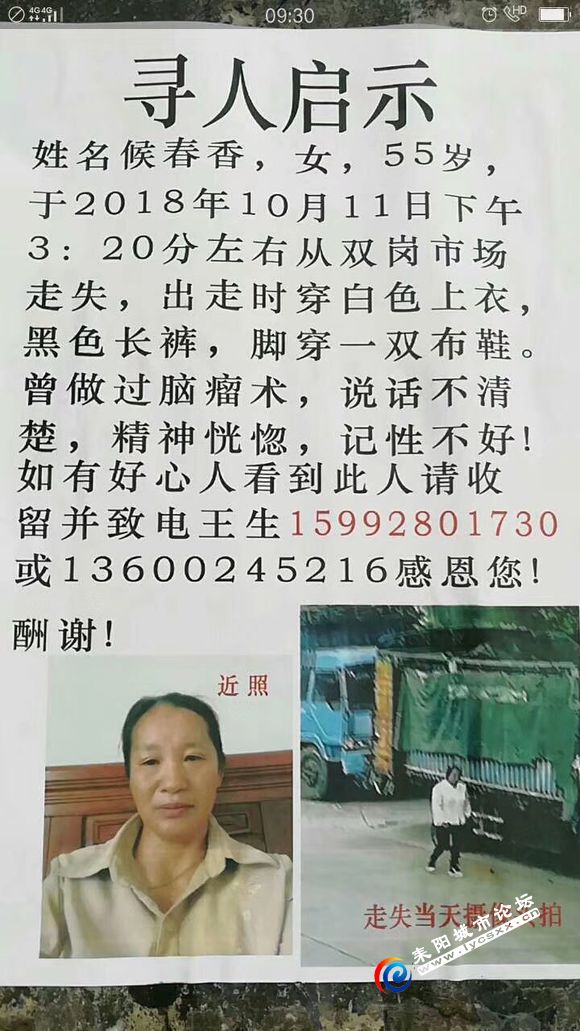 4G 4G
09:30
HD
寻人启示
姓名候春香，女，55岁，
于2018年10月11日下午
3：20分左右从双岗市场
走失，出走时穿白色上衣，
黑色长裤，脚穿一双布鞋。
曾做过脑瘤术，说话不清
楚，精神恍惚，记性不好！
如有好心人看到此人请收
留并致电王生15992801730
或13600245216感恩您！
酬谢！
近照
走失当天摄像 拍
耒阳城市论坛
www.lycsxx.cn